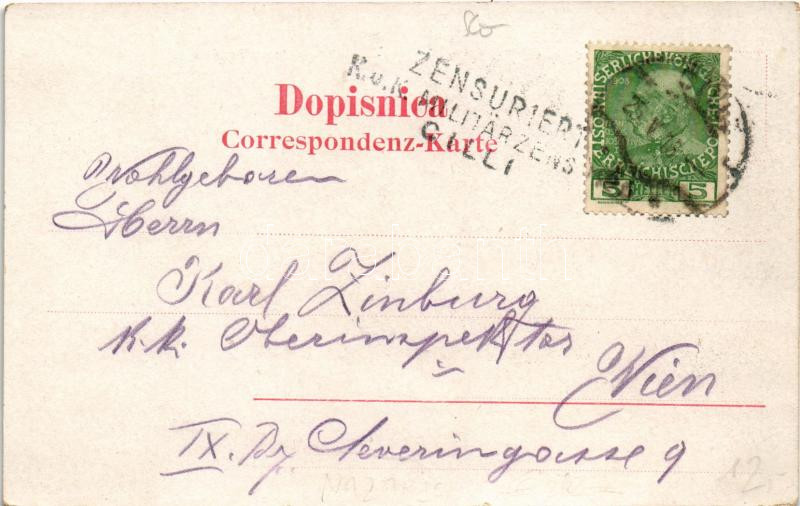 ZENSURIERT
K.u.K. MILITÄRZENS
CILLI
KAISERLICHE KÖNIGLICHE
ÖSTERREICHISCHE POST
5 5
Dopisnica
Correspondenz-Karte
Wohlgeboren
Herrn
Karl Zinburg
k.k. Oberinspektor
Wien
IX. Bz. Severingasse 9
12.-